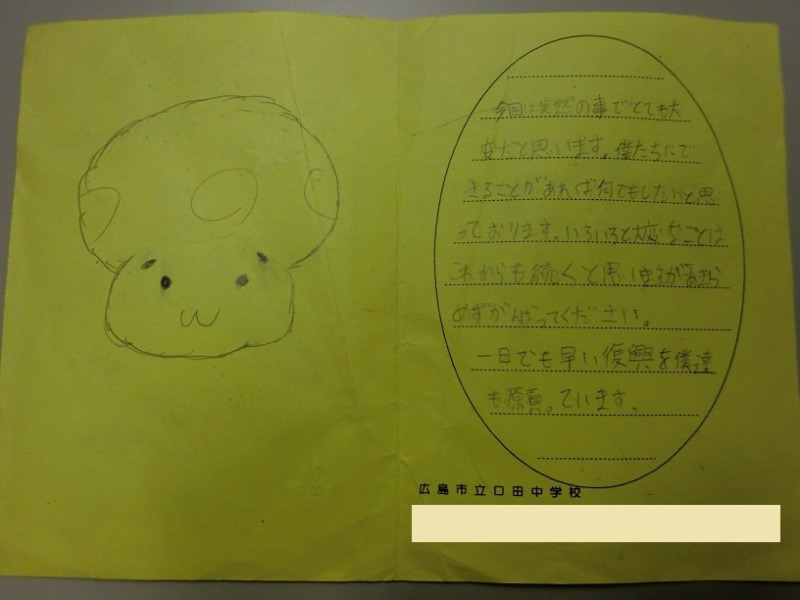 今回は突然の事でとても大
変だと思います。僕たちにで
きることがあれば何でもしたいと思
っております。いろいろと大変なことは
これからも続くと思いますがあきら
めずがんばってください。
一日でも早い復興を僕達
も願っています。
広島市立口田中学校